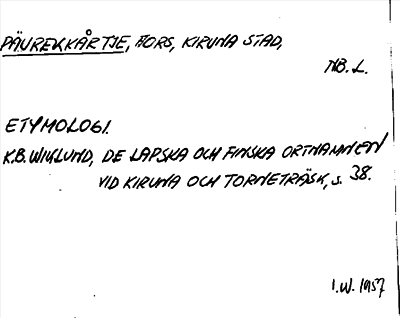 PÄUREKKÅRTJE, FORS, KIRUNA STAD,
NB. L.
ETYMOLOGI.
K.B. WIKLUND, DE LAPSKA OCH FINSKA ORTNAMNEN
VID KIRUNA OCH TORNETRÄSK, s. 38.
I.W. 1957